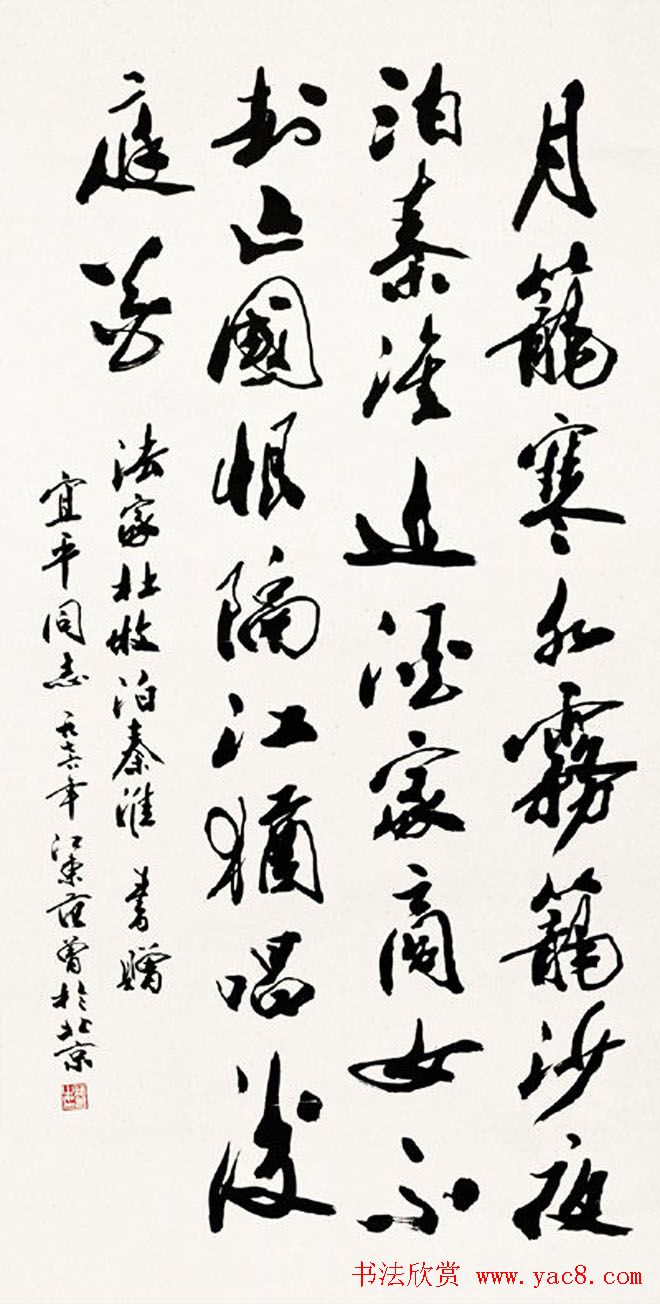 月籠寒水霧籠沙夜
泊秦淮近酒家商女不
知亡國恨隔江猶唱後
庭花
法家杜牧泊秦淮 書贈
宜平同志 一九七六年 江東范曾於北京
书法欣赏 www.yac8.com